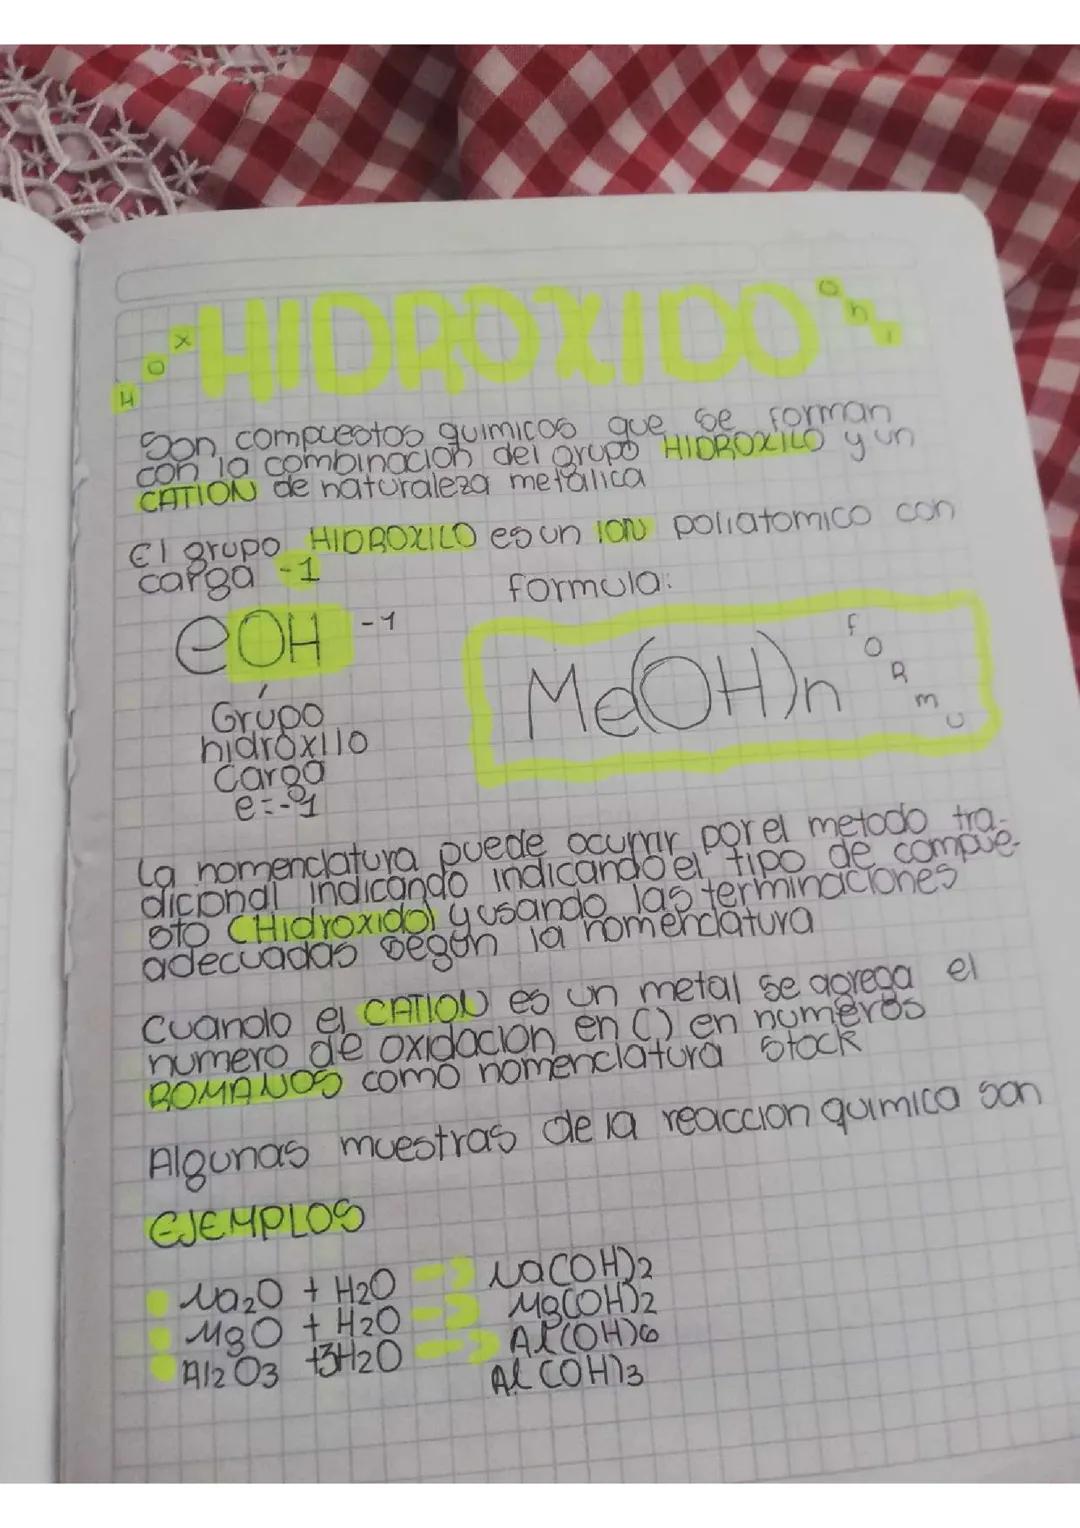 H o x HIDROXIDO O h - 1
Son compuestos quimicos que se forman
con la combinacion del grupo HIDROXILO y un
CATION de naturaleza metálica
El grupo HIDROXILO es un ION poliatomico con
carga -1
formula:
eOH -1
Me(OH)n
FORMU
Grupo
hidróxilo
Carga
e=-1
La nomenclatura puede ocurrir por el metodo tra-
dicional indicando indicando el tipo de compue-
sto (Hidroxido) y usando las terminaciones
adecuadas según la nomenclatura
Cuando el CATION es un metal se agrega el
numero de oxidacion en () en numeros
ROMANOS como nomenclatura stock
Algunas muestras de la reaccion quimica son
EJEMPLOS
Na2O + H2O → Na(OH)2
MgO + H2O → Mg(OH)2
Al2O3 +3H2O → Al(OH)6
Al(OH)3